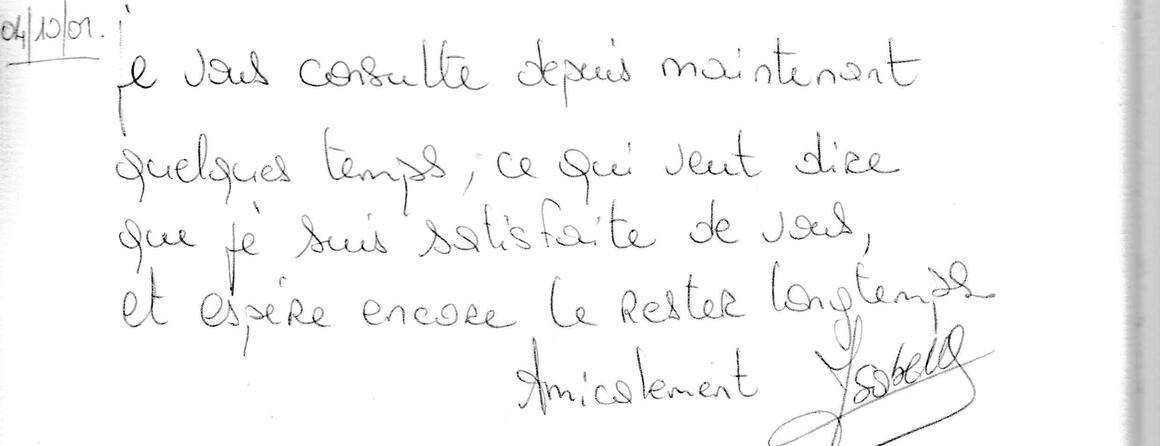 04/10/01.
je vous consulte depuis maintenant
quelques temps, ce qui veut dire
que je suis satisfaite de vous,
et espère encore le rester longtemps
Amicalement Ysabelle